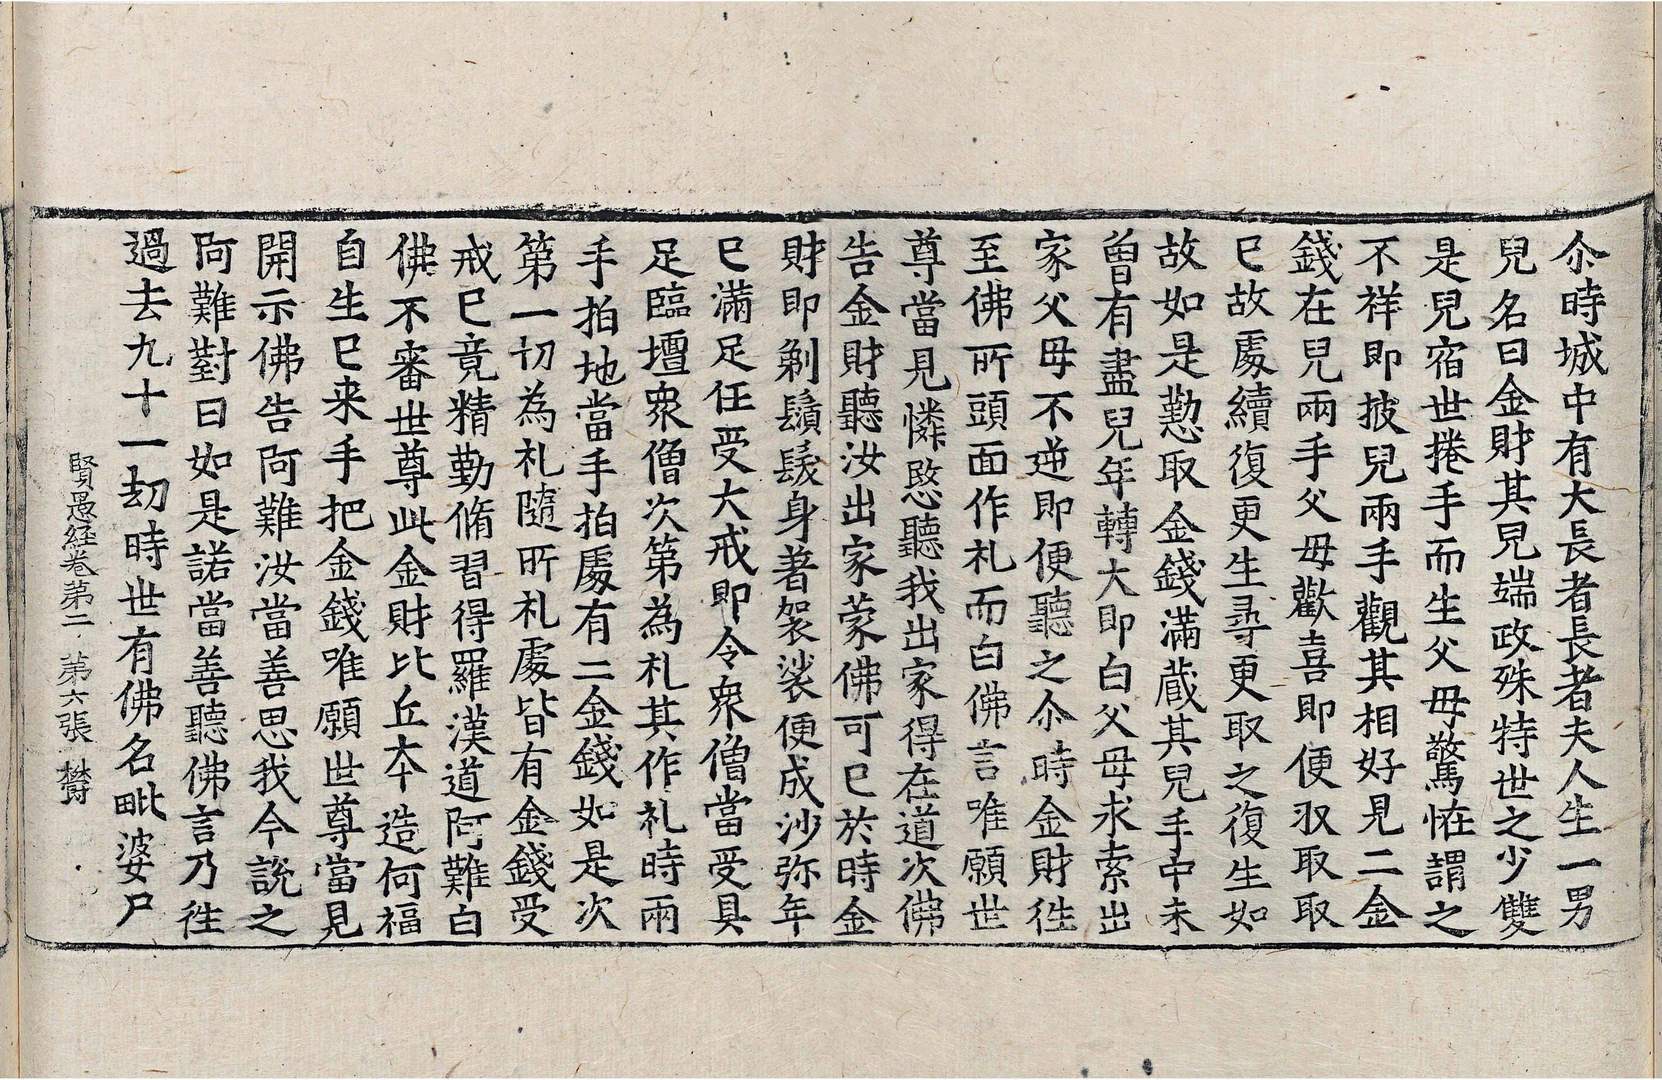 尒時城中有大長者長者夫人生一男
兒名曰金財其兒端政殊特世之少雙
是兒宿世捲手而生父母驚恠謂之
不祥即披兒兩手觀其相好見二金
錢在兒兩手父母歡喜即便収取取
已故處續復更生尋更取之復生如
故如是懃取金錢滿蔵其兒手中未
曾有盡兒年轉大即白父母求索出
家父母不逆即便聽之尒時金財徃
至佛所頭面作礼而白佛言唯願世
尊當見憐愍聽我出家得在道次佛
告金財聽汝出家蒙佛可已於時金
財即剃鬚髮身著袈裟便成沙弥年
已滿足任受大戒即令衆僧當受具
足臨壇衆僧次第為礼其作礼時兩
手拍地當手拍處有二金錢如是次
第一切為礼隨所礼處皆有金錢受
戒已竟精勤脩習得羅漢道阿難白
佛不審世尊此金財比丘本造何福
自生已来手把金錢唯願世尊當見
開示佛告阿難汝當善思我今說之
阿難對曰如是諾當善聽佛言乃徃
過去九十一劫時世有佛名毗婆尸
賢愚経卷第二 第六張 欝